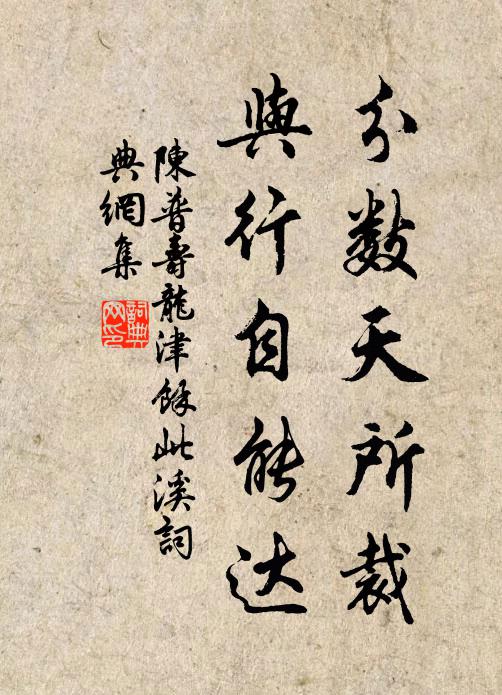 分数天所裁
與行自能达
陳普壽龍津餘此溪詞
典網集
詞典
网印